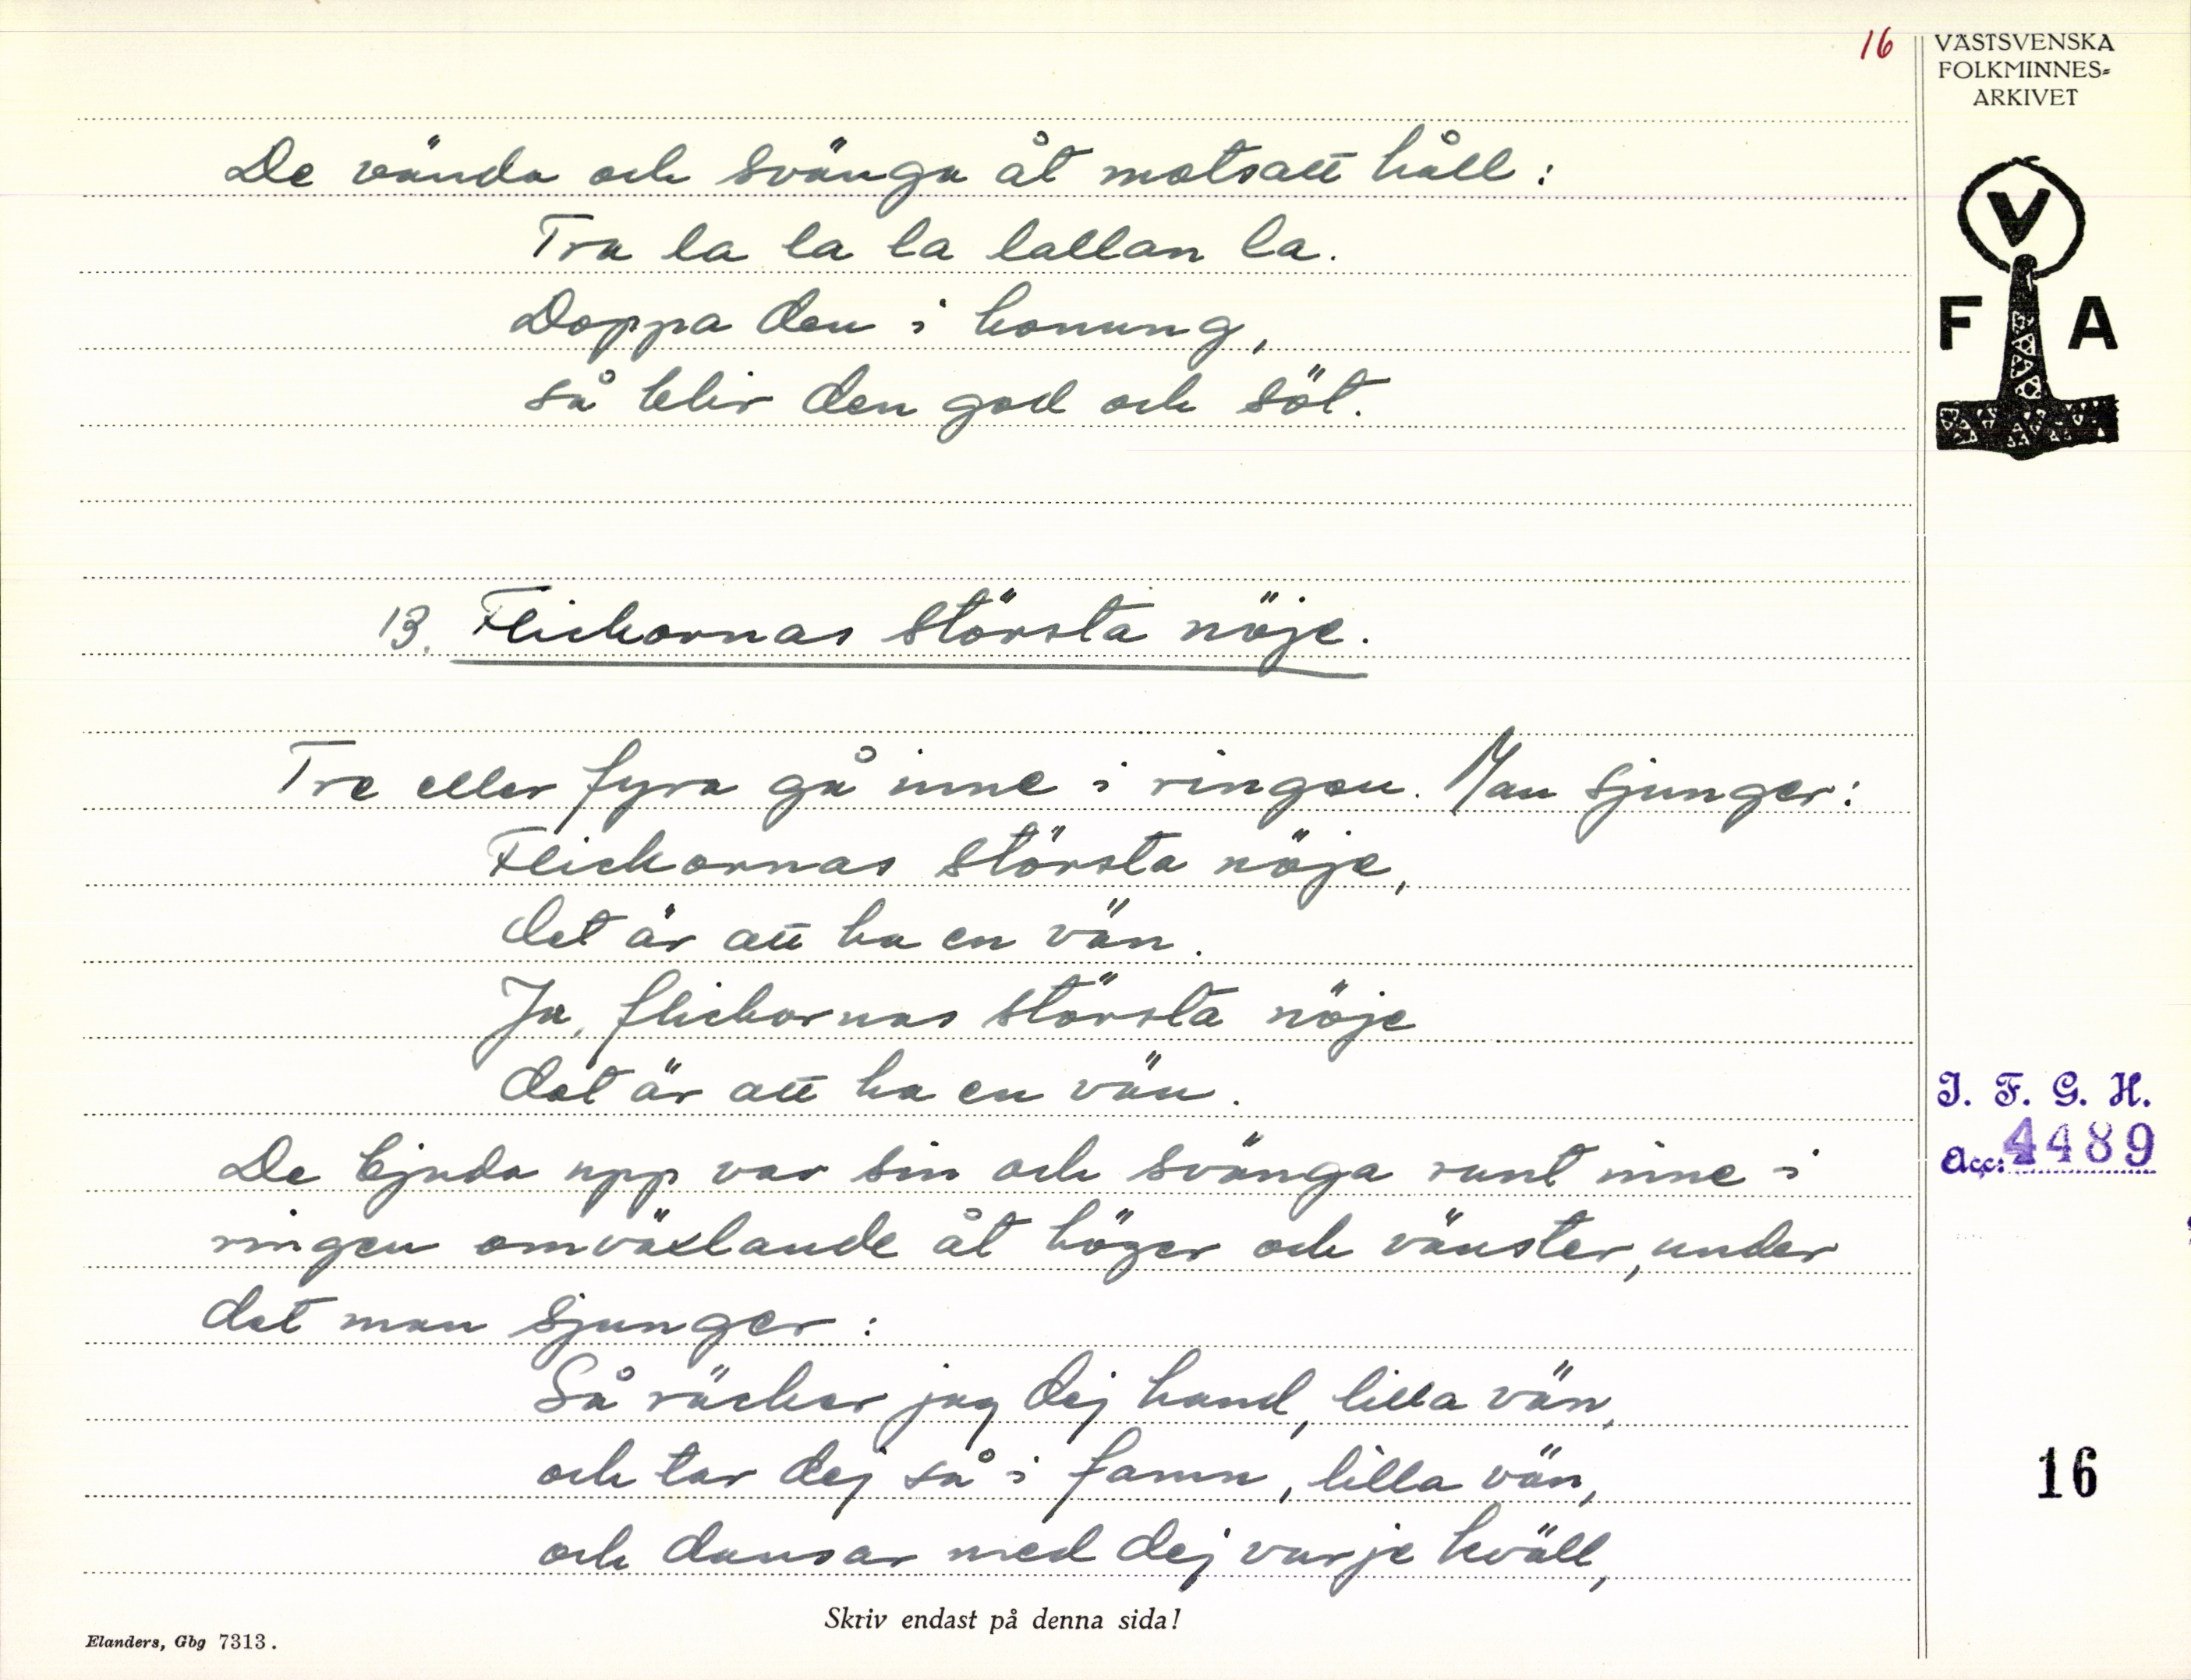 16
VÄSTSVENSKA
FOLKMINNES=
ARKIVET
V
F A
De vända och svänga åt motsatt håll:
Tra la la la lallan la.
Doppa den i honung,
så blir den god och söt.
13. Flickornas största nöje.
Tre eller fyra gå inne i ringen. Man sjunger:
Flickornas största nöje,
det är att ha en vän.
Ja, flickornas största nöje
det är att ha en vän.
De bjuda upp var sin och svänga runt inne i
ringen omväxlande åt höger och vänster, under
det man sjunger:
Så räcker jag dej hand, lilla vän,
och tar dej så i famn, lilla vän,
och dansar med dej varje kväll,
I. F. G. H.
Acc: 4489
16
Skriv endast på denna sida!
Elanders, Gbg 7313.